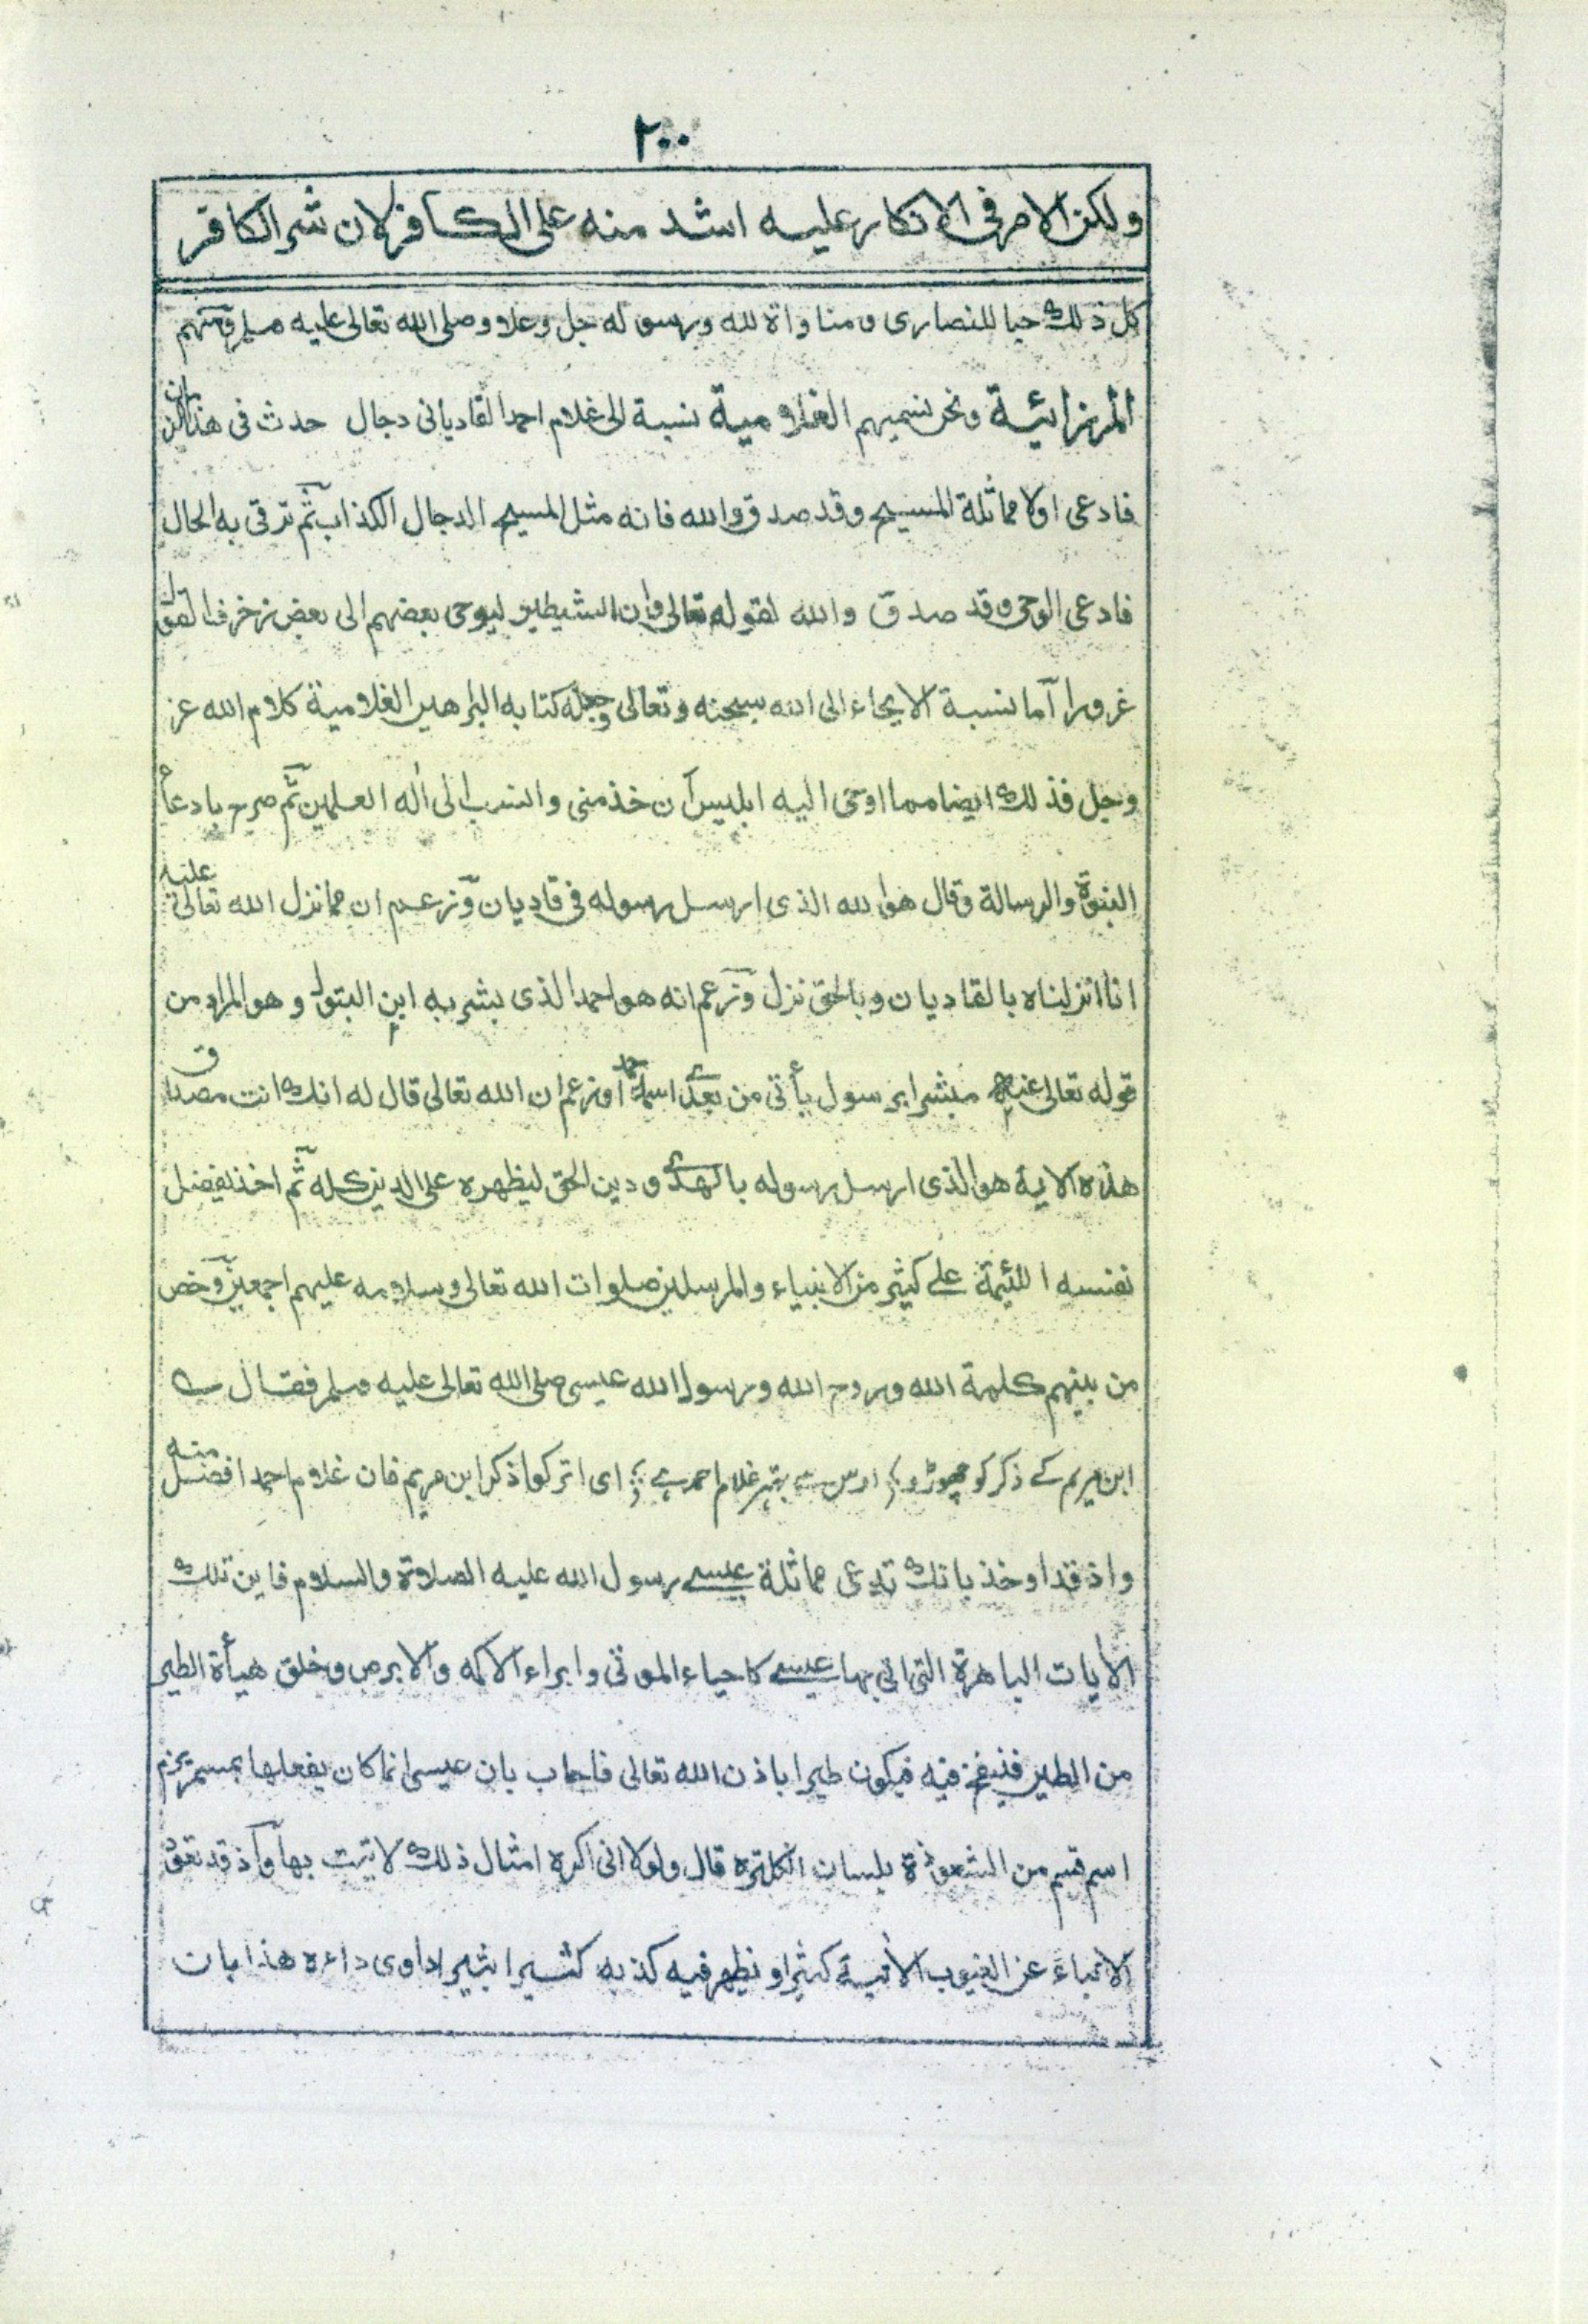 ٢٠٠
ولكن الامر فى الانكار عليه اشد منه على الكافر لان شر الكافر
كل ذلك حبا للنصارى ومناواة لله ورسوله جل وعلا وصلى الله تعالى عليه وسلم ومنهم
المرزائية ونحن نسميهم الغلامية نسبة الى غلام احمد القاديانى دجال حدث فى هذا الزمان
فادعى اولا مماثلة المسيح وقد صدق والله فانه مثل المسيح الدجال الكذاب ثم ترقى به الحال
فادعى الوحى وقد صدق والله لقوله تعالى وان الشيطين ليوحى بعضهم الى بعض زخرف القول
غرورا آما نسبة الايحاء الى الله سبحنه وتعالى وجعله كتابه البراهين الغلامية كلام الله عز
وجل فذلك ايضا مما اوحى اليه ابليس ان خذ منى وانسب الى اله العلمين ثم صرح بادعاء
النبوة والرسالة وقال هو الله الذى ارسل رسوله فى قاديان وزعم ان مما نزل الله تعالى عليه
انا انزلناه بالقاديان وبالحق نزل وزعم انه هو احمد الذى بشر به ابن البتول وهو المراد من
قوله تعالى عنه مبشرا برسول يأتى من بعدى اسمه احمد وزعم ان الله تعالى قال له انك انت مصداق
هذه الاية هو الذى ارسل رسوله بالهدى ودين الحق ليظهره على الدين كله ثم اخذ يفضل
نفسه اللئيمة على كثير من الانبياء والمرسلين صلوات الله تعالى وسلامه عليهم اجمعين وخص
من بينهم كلمة الله وروح الله ورسول الله عيسى صلى الله تعالى عليه وسلم فقال
ابن مريم کے ذکر کو چھوڑو ؛ اوس سے بہتر غلام احمد ہے ؛ اى اتركوا ذكر ابن مريم فان غلام احمد افضل منه
واذ قد اوخذ بانك تدعى مماثلة عيسى رسول الله عليه الصلاة والسلام فاين تلك
الأيات الباهرة التى اتى بها عيسى كاحياء الموتى وابراء الاكمه والابرص وخلق هيأة الطير
من الطير فينفخ فيه فيكون طيرا باذن الله تعالى فاجاب بان عيسى انما كان يفعلها بمسمريزم
اسم قسم من الشعوذة بلسان انكلتره قال ولولا انى اكره امثال ذلك لاتيت بها وآذ قد تعود
الانباء عن الغيوب الأتية كثيرا ويظهر فيه كذبه كثيرا بثيرا داوى داءه هذا بان